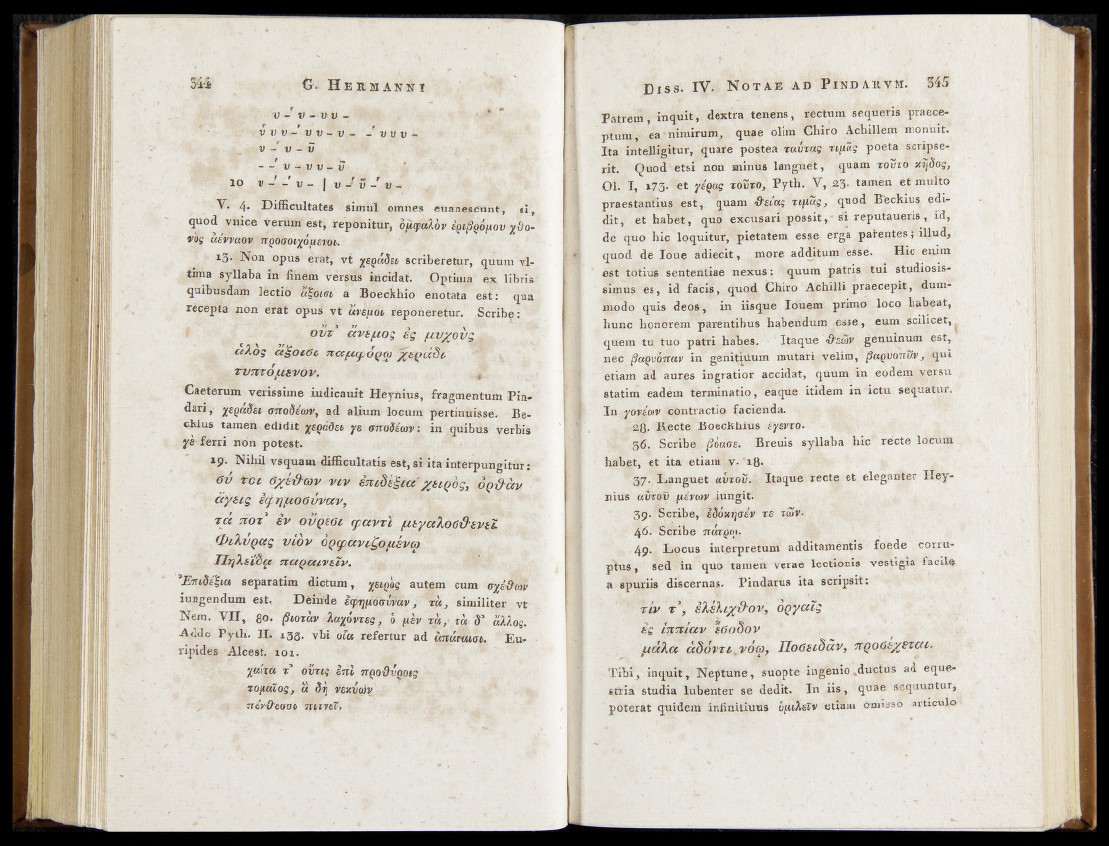 344 G. HERMANNI
υ –́ υ – υ υ –
ύ υ υ –́ υ υ – υ – –́ υ υ υ –
υ –́ υ – ῡ
– –́ υ – υ υ – ῡ
10 υ –́ –́ υ – | υ –́ ῡ –́ υ –
V. 4. Difficultates simul omnes euanescunt, si,
quod vnice verum est, reponitur, ὀμφαλὸν ἐριβρόμου χθο-
νὸς ἀένναον προσοιχόμενοι.
13. Non opus erat, vt χεράδει scriberetur, quum vl-
tima syllaba in finem versus incidat. Optima ex libris
quibusdam lectio ἄξοισι a Boeckhio enotata est: qua
recepta non erat opus vt ἄνεμοι reponeretur. Scribe:
οὔτ᾽ ἄνεμος ἐς μυχοὺς
ἁλὸς ἄξοισι παμφόρῳ χεράδι
τυπτόμενον.
Caeterum verissime iudicauit Heynius, fragmentum Pin-
dari, χεράδει σποδέων, ad alium locum pertinuisse. Be-
ckius tamen edidit χεράδει γε σποδέων: in quibus verbis
γὲ ferri non potest.
19. Nihil vsquam difficultatis est, si ita interpungitur:
σύ τοι σχέθων νιν ἐπιδέξια χειρὸς, ὀρθὰν
ἄγεις ἐφημοσύναν,
τά ποτ᾽ ἐν οὔρεσι φαντὶ μεγαλοσθενεῖ
Φιλύρας υἱὸν ὀρφανιζομένῳ
Πηλεΐδᾳ παραινεῖν.
Ἐπιδέξια separatim dictum, χειρὸς autem cum σχέθων
iungendum est. Deinde ἐφημοσύναν, τὰ, similiter vt
Nem. VII, 80. βιοτὰν λαχόντες, ὁ μὲν τὰ, τὰ δ᾽ ἄλλος.
Adde Pyth. II. 138. vbi οἷα refertur ad ἀπάταισι. Eu-
ripides Alcest. 101.
χαίτα τ᾽ οὔτις ἐπὶ προθύροις
τομαῖος, ἃ δὴ νεκύων
πένθεσσι πιτνεῖ.
DISS. IV. NOTAE AD PINDARVM. 345
Patrem, inquit, dextra tenens, rectum sequeris praece-
ptum, ea nimirum, quae olim Chiro Achillem monuit.
Ita intelligitur, quare postea ταύτας τιμᾶς poeta scripse-
rit. Quod etsi non minus languet, quam τοῦτο κῆδος,
Ol. I, 173. et γέρας τοῦτο, Pyth. V, 23. tamen et multo
praestantius est, quam θείας τιμᾶς, quod Beckius edi-
dit, et habet, quo excusari possit, si reputaueris, id,
de quo hic loquitur, pietatem esse erga parentes; illud,
quod de Ioue adiecit, more additum esse. Hic enim
est totius sententiae nexus: quum patris tui studiosis-
simus es, id facis, quod Chiro Achilli praecepit, dum-
modo quis deos, in iisque Iouem primo loco habeat,
hunc honorem parentibus habendum esse, eum scilicet,
quem tu tuo patri habes. Itaque θεῶν genuinum est,
nec βαρυόπαν in genitiuum mutari velim, βαρυοπᾶν, qui
etiam ad aures ingratior accidat, quum in eodem versu
statim eadem terminatio, eaque itidem in ictu sequatur.
In γονέων contractio facienda.
28. Recte Boeckhius ἔγεντο.
36. Scribe βόασε. Breuis syllaba hic recte locum
habet, et ita etiam v. 18.
37. Languet αὐτοῦ. Itaque recte et eleganter Hey-
nius αὐτοῦ μένων iungit.
39. Scribe, ἐδόκησέν τε τῶν.
46. Scribe πάτρῳ.
49. Locus interpretum additamentis foede corru-
ptus, sed in quo tamen verae lectionis vestigia facile
a spuriis discernas. Pindarus ita scripsit:
τίν τ᾽, ἐλέλιχθον, ὀργαῖς
ἐς ἱππίαν ἔσοδον
μάλα ἁδόντι νόῳ, Ποσειδᾶν, προσέχεται.
Tibi, inquit, Neptune, suopte ingenio ductus ad eque-
stria studia lubenter se dedit. In iis, quae sequuntur,
poterat quidem infinitiuus ὁμιλεῖν etiam omisso articulo